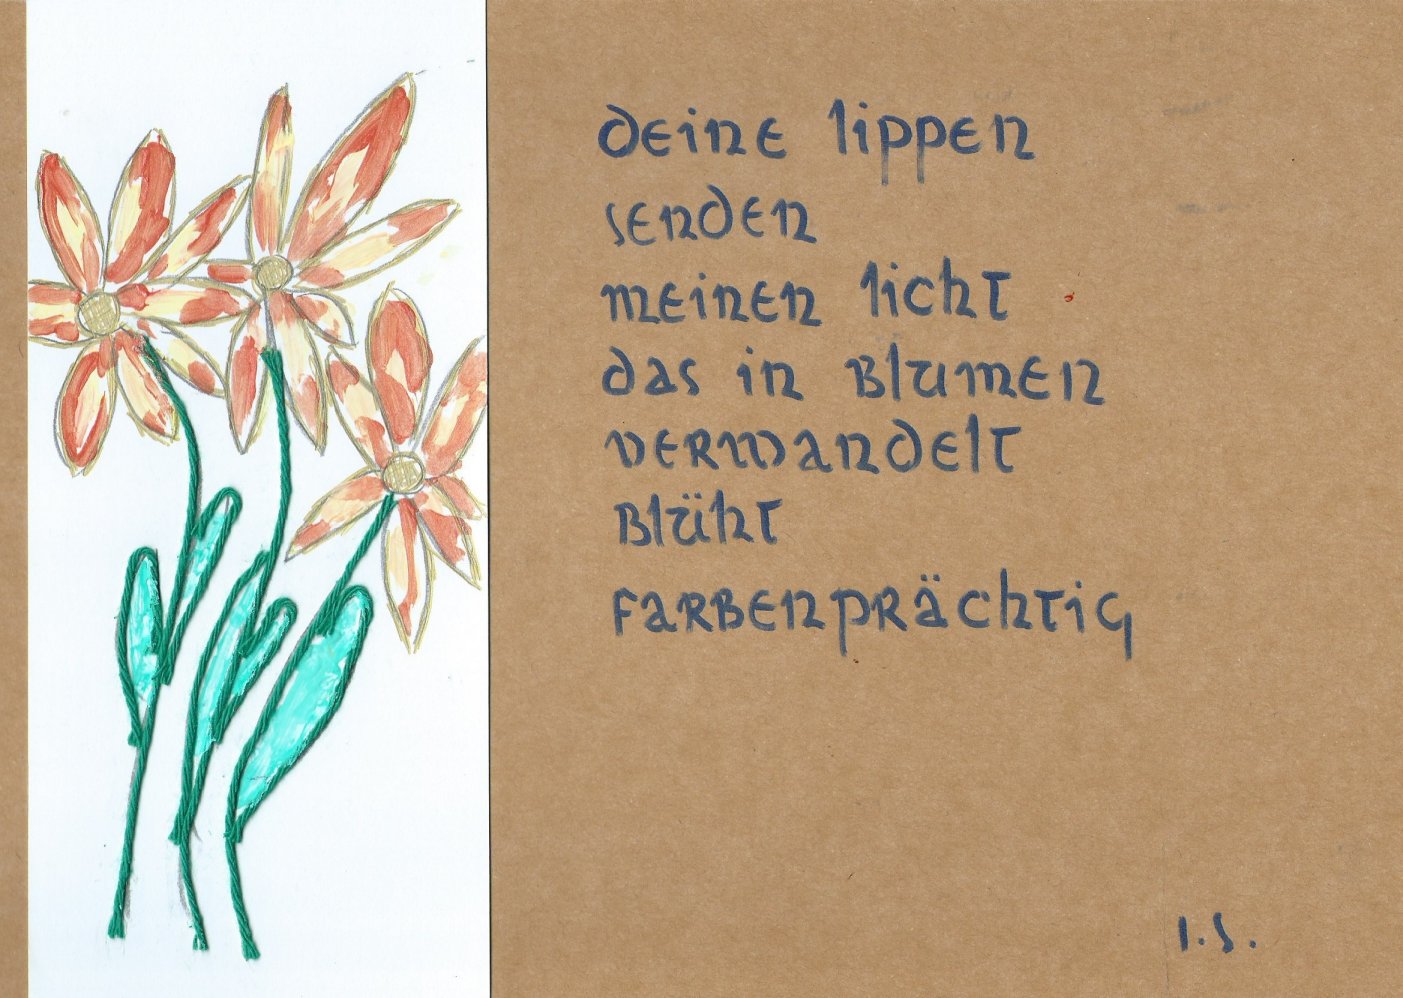 deine lippen
senden
meinen licht
das in Blumen
verwandelt
Blüht
farBenprächtig
I.S.